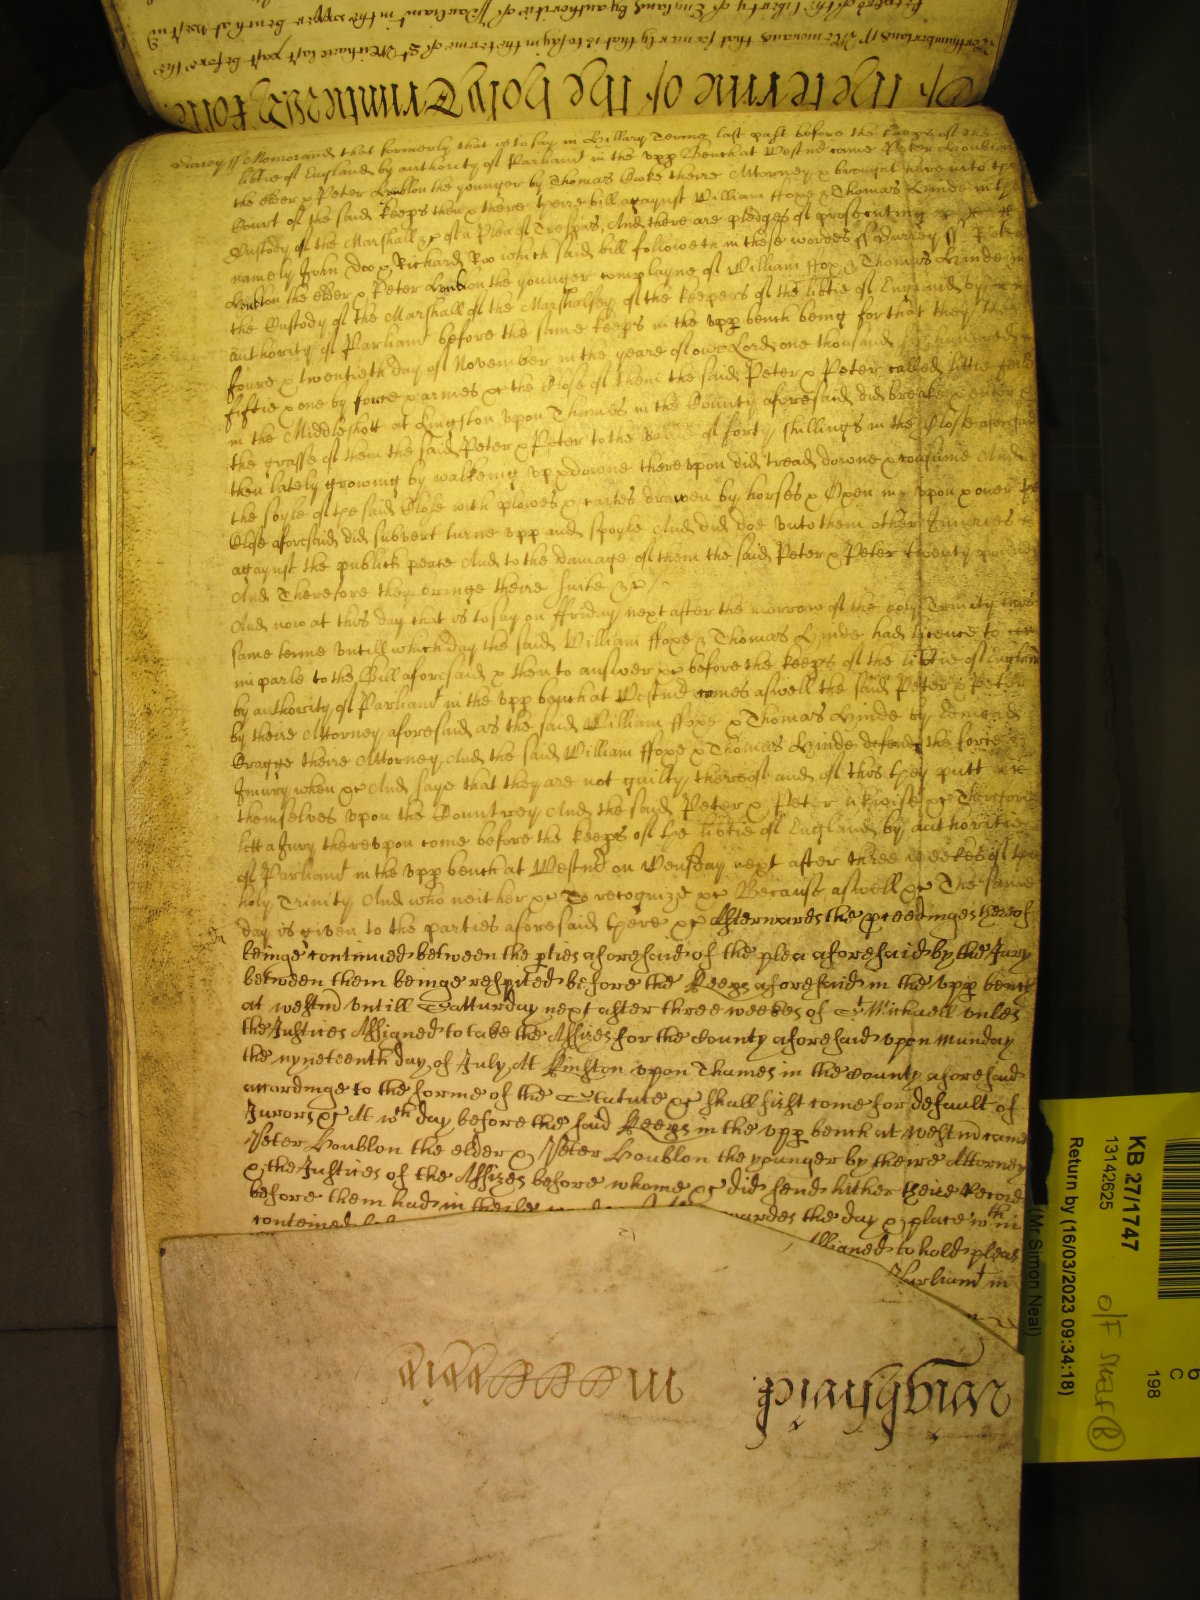 Northumberland ss Memorand that formerly that is to say in the terme of St Michaell last past before the
keepers of the liberty of England by authoritie of Parliament in the upper bench at Westm
Of the terme of the holy Trinitie
Surrey ss Memorand that formerly that is to say in Hillary Terme last past before the keeps of the
libtie of England by authority of Parliamt in the upp Bench at Westmd came Peter Houblon
the elder & Peter Houblon the younger by Thomas Cooke theire Attorney & brought here into the
Court of the said keeps then & there theire bill against William ffoxe & Thomas Hinde in the
Custody of the Marshall &c of a Plea of Trespas, And there are pledges of prosecuting
namely John Doo & Richard Roo which said bill followeth in these wordes ss Surrey ss Peter
Houblon the elder & Peter Houblon the younger complayne of William ffox & Thomas Hinde in
the Custody of the Marshall of the Marshalsey of the keepers of the libtie of England by
authority of Parliamt before the same keeps in the upp bench being for that they the
foure & twentieth day of November in the yeare of our Lord one thousand six hundred
fiftie & one by force & armes &c the Close of them the said Peter & Peter called little
in the Middleshott at Kingston upon Thames in the County aforesaid did breake & enter &
the grasse of them the said Peter & Peter to the value of forty shillings in the Close aforesaid
then lately growing by walkeing up & downe thereupon did tread downe & consume And
the soyle of the said Close with plowes & cartes drawen by horses & Oxen in & upon & over the
Close aforesaid did subvert turne upp and spoyle And did doe unto them other Injuries &c
against the publick peace And to the damage of them the said Peter & Peter twenty pounds
And Therefore they bringe theire suite &c /
And now at this day that is to say on ffriday next after the morrow of the holy Trinity this
same terme untill which day the said William ffoxe & Thomas Hinde had licence to
imparle to the Bill aforesaid & then to answer &c before the keeps of the libtie of England
by authority of Parliamt in the upp bench at Westmd comes aswell the said Peter & Peter
by theire Attorney aforesaid as the said William ffoxe & Thomas Hinde by Edmond
Bragge theire Attorney, And the said William ffoxe & Thomas Hinde defende the force &
Injury when &c And saye that they are not guilty thereof and of this they putt
themselves upon the Countrey And the said Peter & Peter likwise &c Therefore
lett a Jury thereupon come before the keeps of the libtie of England by authoritie
of Parliamt in the upp bench at Westmd on Wensday next after three weekes of the
holy Trinity And who neither &c To recognize &c Because aswell &c The same
day is given to the parties aforesaid there &c Afterwards the pceedinges thereof
beinge continued between the pties aforesaid of the plea aforesaid by the Jury
between them beinge respited before the Keeps aforesaid in the upp bench
at westmd untill Satturday next after three weekes of St Michaell unles
the Justices Assigned to take the Assizes for the County aforesaid upon munday
the nyneteenth day of July At Kinston upon Thames in the County aforesaid
accordinge to the forme of the Statute &c shall first come for default of
Jurors &c At wch day before the said Keeps in the upp bench at westmd came
Peter Houblon the elder & Peter Houblon the younger by theire Attorney
& the Justices of the Assizes before whome &c did send hither theire Record
before them had in these wardes the day & place wthin
contened ssigned to hold pleas
Parliamt in
KB 27/1747
13142625
Return by (16/03/2023 09:34:18)
(Mr Simon Neal)
6
C
198